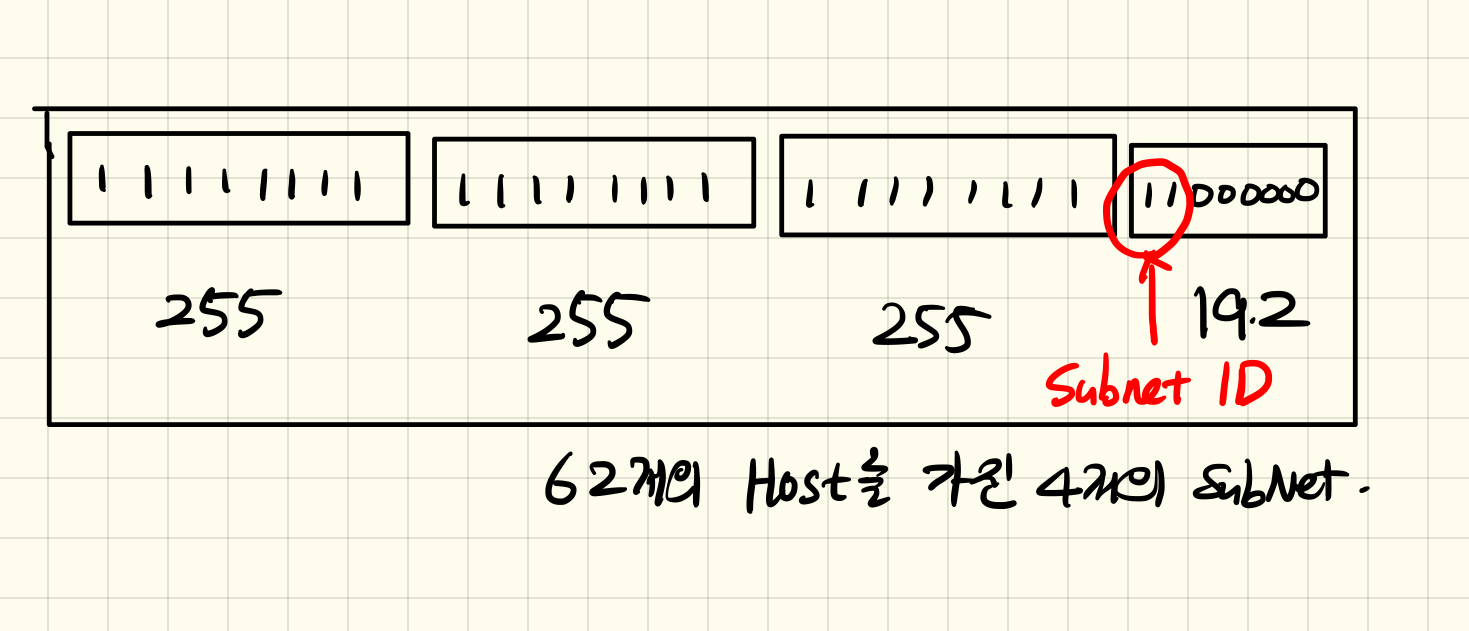 11111111 11111111 11111111 11000000
255 255 255 19.2
Subnet ID
62개의 Host를 가진 4개의 SubNet.